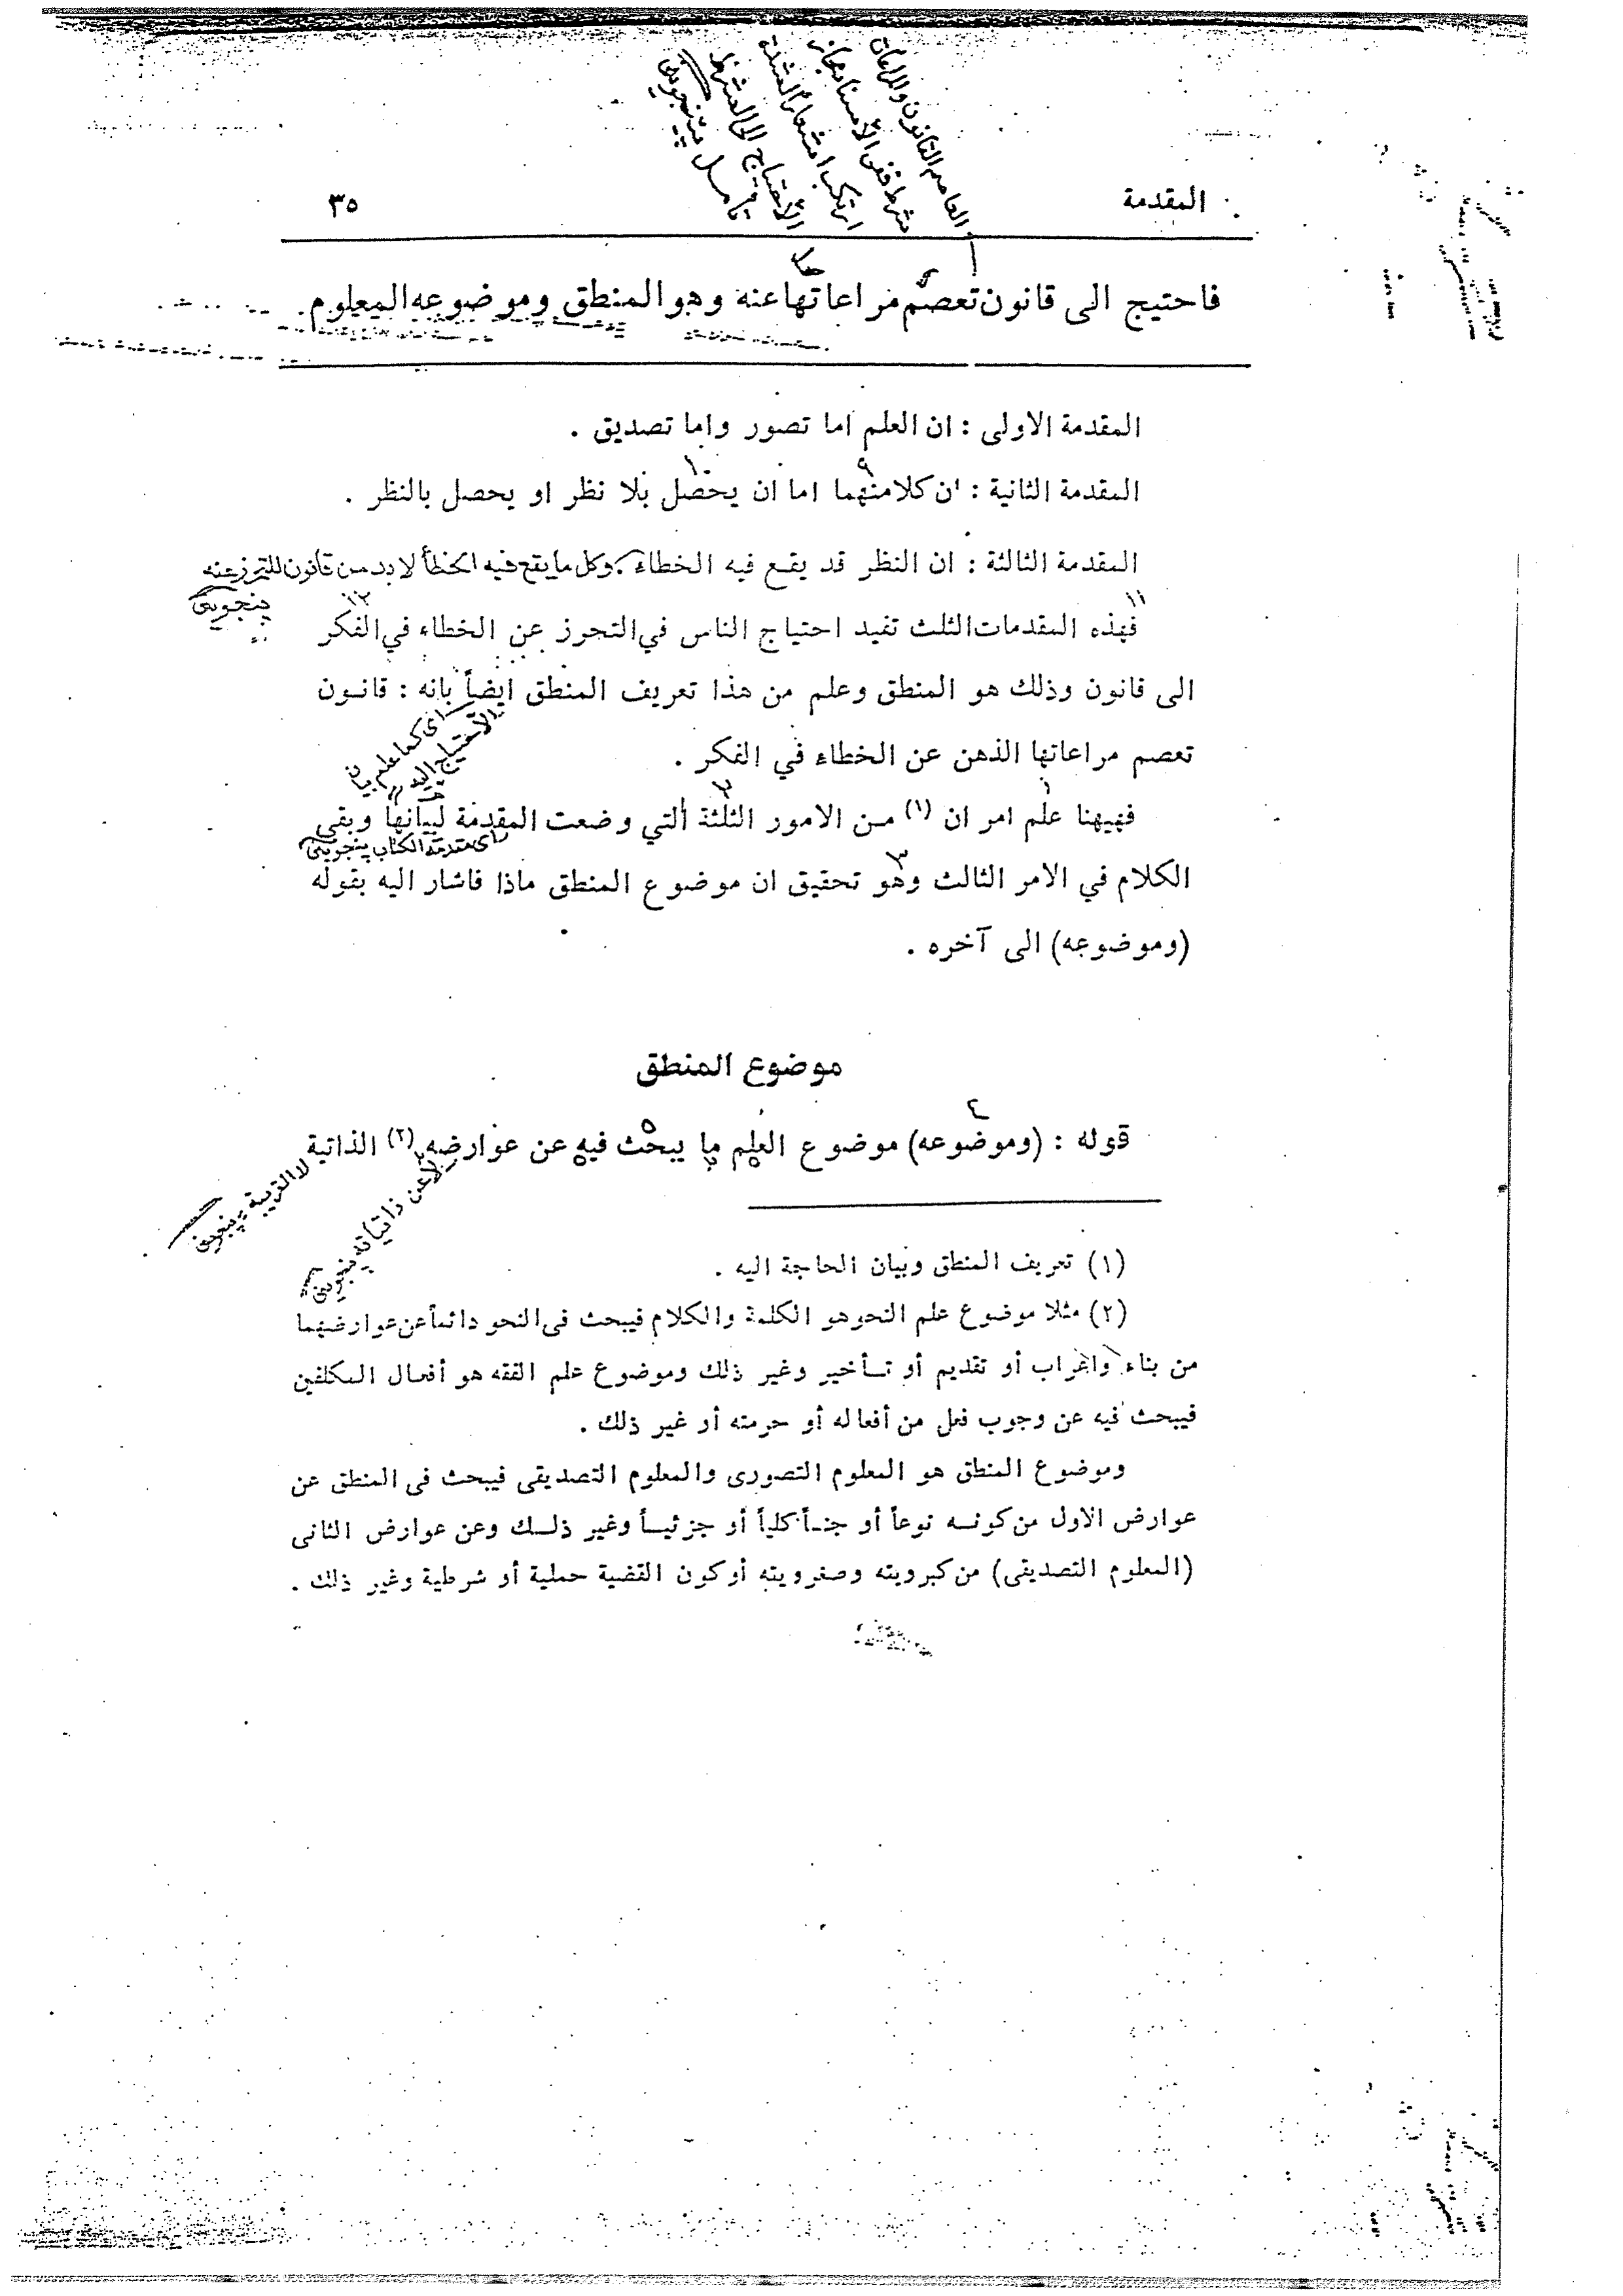 المقدمة
٣٥
العاصم القانون والمراعات
شرط ففى الأسناد مجاز
ارتكب اشعاراً لشدة
الأحتياج الى الشرط
تأمل پينجوينى
فاحتيج الى قانون تعصم مراعاتها عنه وهو المنطق وموضوعه المعلوم
المقدمة الاولى : ان العلم اما تصور واما تصديق .
المقدمة الثانية : ان كلا منهما اما ان يحصل بلا نظر او يحصل بالنظر .
المقدمة الثالثة : ان النظر قد يقع فيه الخطاء . وكل ما يقع فيه الخطأ لا بد من قانون للتحرز عنه
پنجوينى
فهذه المقدمات الثلث تفيد احتياج الناس في التحرز عن الخطاء في الفكر
الى قانون وذلك هو المنطق وعلم من هذا تعريف المنطق ايضاً بانه : قانون
اى كما علم بيان
الأحتياج اليه
تعصم مراعاتها الذهن عن الخطاء في الفكر .
فههنا علم امر ان (١) من الامور الثلثة التي وضعت المقدمة لبيانها وبقى
اى مقدمة الكتاب پنجوينى
الكلام في الامر الثالث وهو تحقيق ان موضوع المنطق ماذا فاشار اليه بقوله
(وموضوعه) الى آخره .
موضوع المنطق
قوله : (وموضوعه) موضوع العلم ما يبحث فيه عن عوارضه (٢) الذاتية
لا الغريبة پنجوينى
لا عن ذاتياته پنجوينى
(١) تعريف المنطق وبيان الحاجة اليه .
(٢) مثلا موضوع علم النحو هو الكلمة والكلام فيبحث فى النحو دائماً عن عوارضهما
من بناء واعراب أو تقديم أو تأخير وغير ذلك وموضوع علم الفقه هو أفعال المكلفين
فيبحث فيه عن وجوب فعل من أفعاله أو حرمته أو غير ذلك .
وموضوع المنطق هو المعلوم التصورى والمعلوم التصديقى فيبحث فى المنطق عن
عوارض الاول من كونه نوعاً أو جنساً كلياً أو جزئياً وغير ذلك وعن عوارض الثانى
(المعلوم التصديقى) من كبرويته وصغرويته أو كون القضية حملية أو شرطية وغير ذلك .